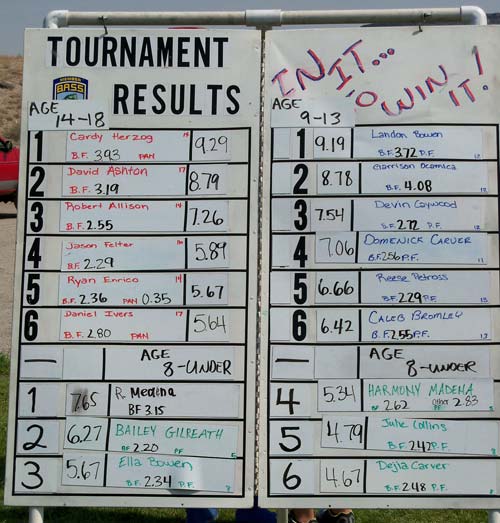 TOURNAMENT
MEMBER
BASS
RESULTS
AGE
14-18
1 Cardy Herzog 9.29
B.F. 3.93 PAN
2 David Ashton 17 8.79
B.F. 3.19
3 Robert Allison 14 7.26
B.F. 2.55
4 Jason Felter 5.89
B.F. 2.29
5 Ryan Enrico 14 5.67
B.F. 2.36 PAN 0.35
6 Daniel Ivers 17 5.64
B.F. 2.80 PAN
— AGE
8-UNDER
1 7.65 R. Medena
BF 3.15
2 6.27 BAILEY GILREATH
BF 2.20 PF 5
3 5.67 Ella Bowen
B.F. 2.34 P.F. 8
INIT...
TO WIN
IT!
AGE
9-13
1 9.19 Landon Bowen
B.F. 3.72 P.F. 12
2 8.78 Garrison Ocamica
B.F. 4.08
3 7.54 Devin Caywood
B.F. 2.72 P.F.
4 7.06 DOMENICK CARVER
B.F. 2.56 P.F. 11
5 6.66 Reese Petross
B.F. 2.29 P.F.
6 6.42 CALEB BROMLEY
B.F. 2.55 P.F. 13
— AGE
8-UNDER
4 5.34 HARMONY MADENA
BF 2.62 Other 2.83
5 4.79 Julie Collins
B.F. 2.42 P.F.
6 4.67 Dejla Carver
B.F. 2.48 P.F. 8